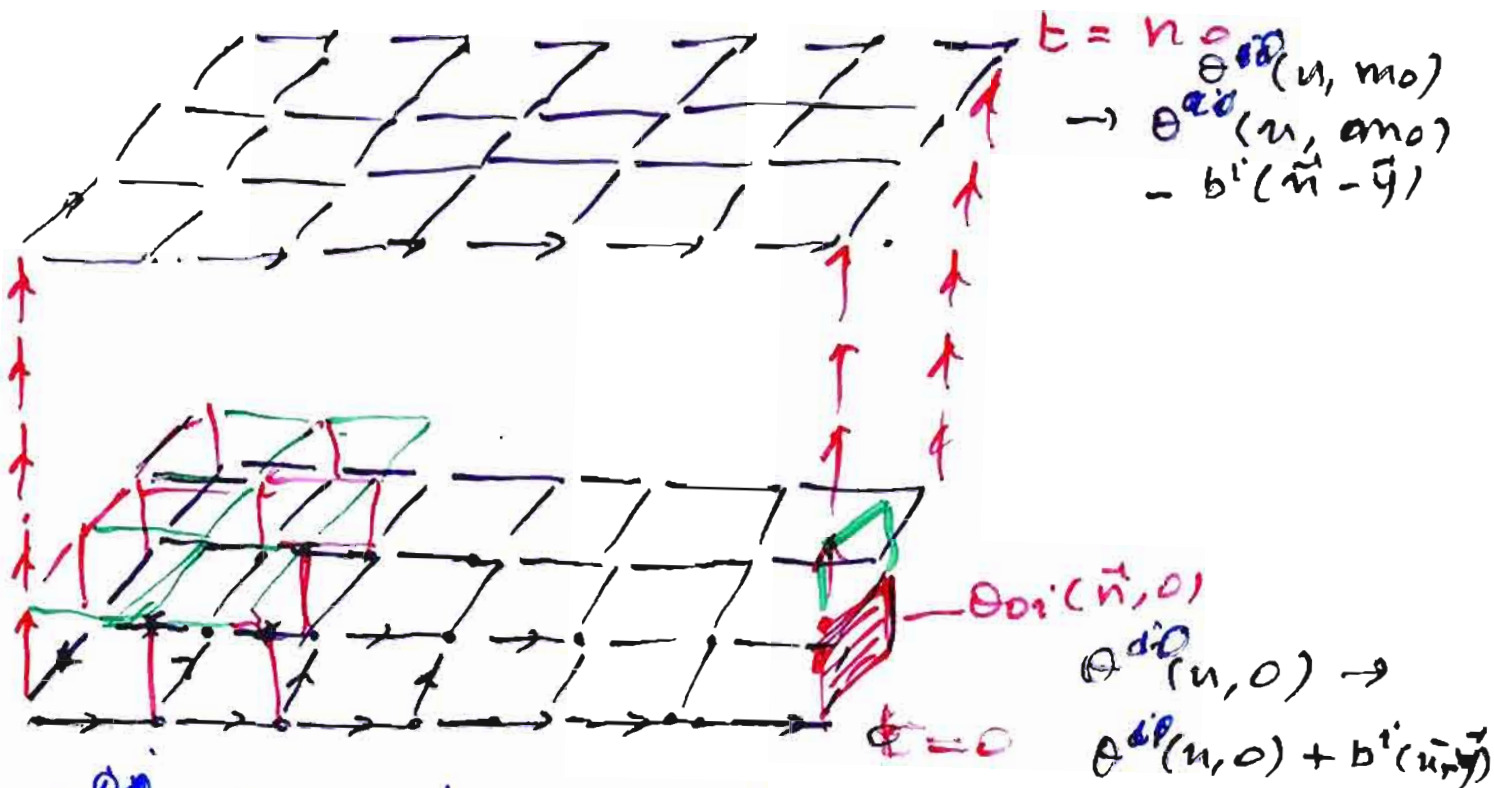 t = n₀
θ^{i0}(n, m₀)
→ θ^{i0}(n, m₀)
- b^i(n⃗ - y⃗)
θ₀ᵢ(n⃗, 0)
θ^{i0}(n, 0) →
t = 0
θ^{i0}(n, 0) + b^i(n⃗ - y⃗)